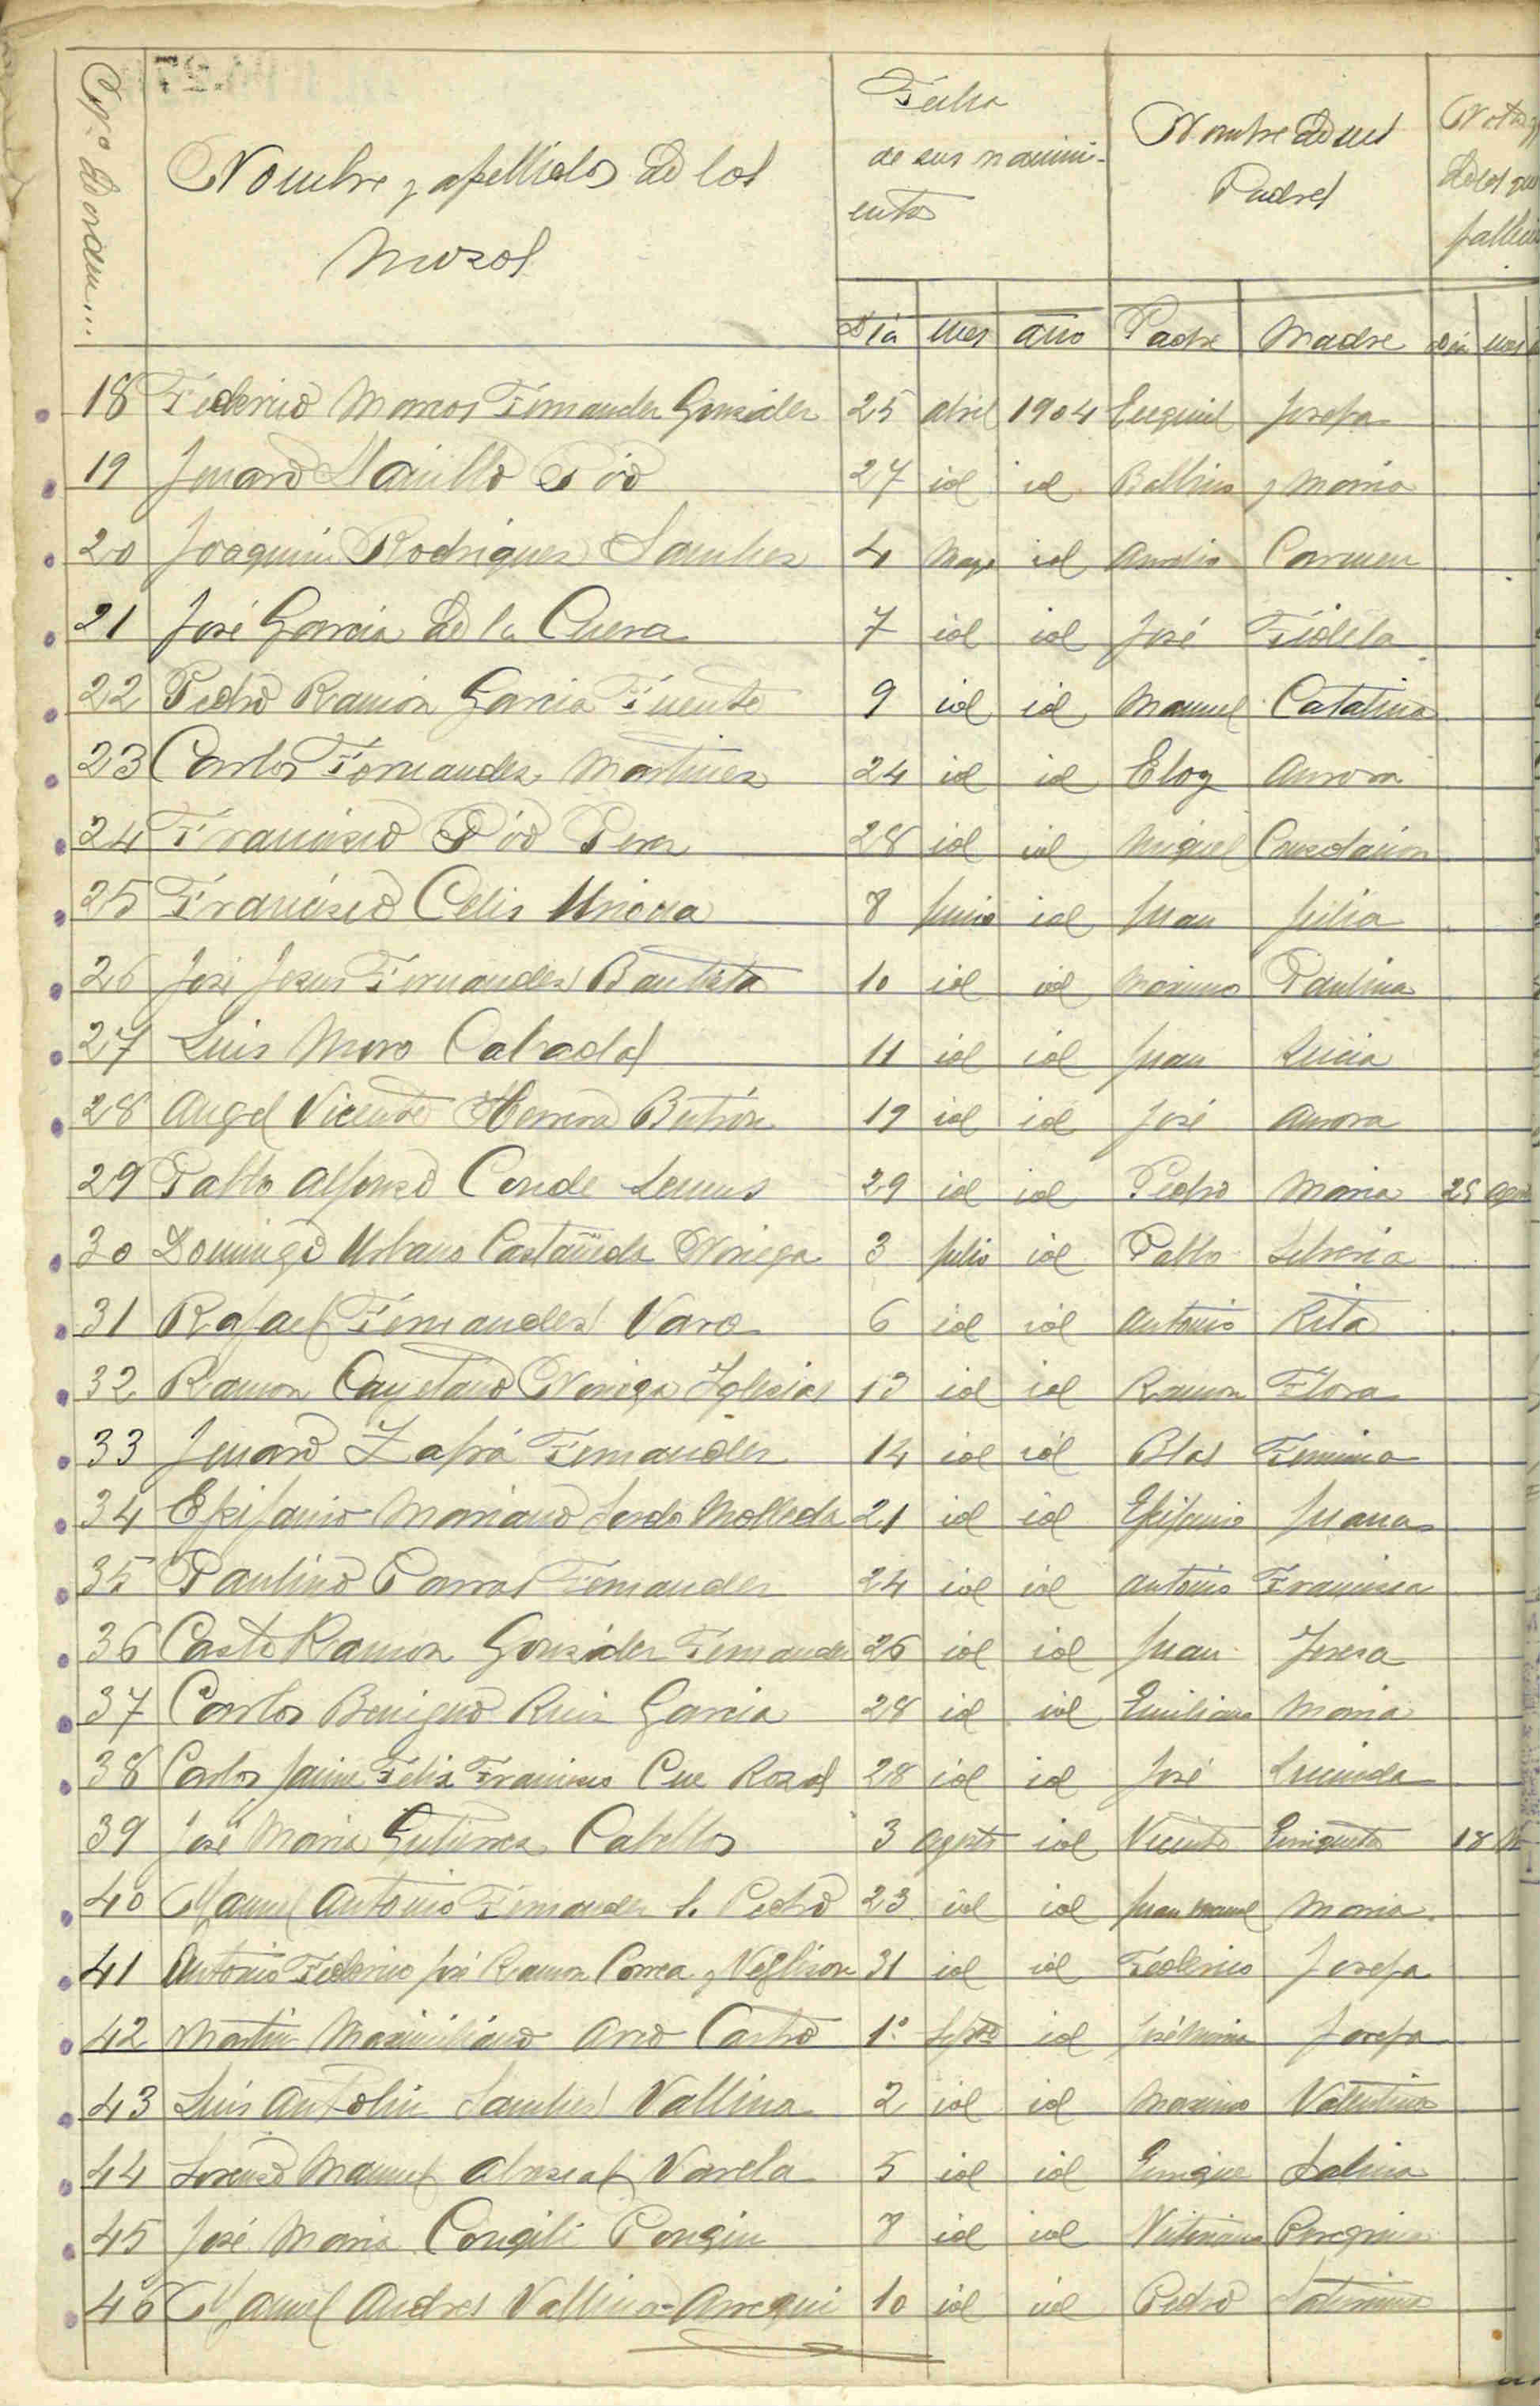 Nº de orden...
Nombre y apellidos de los
Mozos
Fecha
de sus nacimi-
entos
Nombre de sus
Padres
Notas
de los que
Dia mes año Padre Madre Dia mes
18 Federico Marcos Fernandez Gonzalez 25 abril 1904 Ezequiel Josefa
19 Jenaro Pio 27 id id Balbino y Maria
20 Joaquin Rodriguez Sanchez 4 Mayo id Carmen
21 José Garcia de la Cueva 7 id id José Fidela
22 Pedro Ramón Garcia Fuente 9 id id Manuel Catalina
23 Carlos Fernandez Martinez 24 id id Eloy Aurora
24 Francisco Pio Perez 28 id id Miguel Consolacion
25 Francisco Celis Unieda 8 Junio id Juan Julia
26 José Jesus Fernandez Bautista 10 id id Maximo Paulina
27 Luis Moro Cabrada 11 id id Juan Lucia
28 Angel Vicente Herrera Butrón 19 id id José Aurora
29 Pablo Alfonso Conde Lemus 29 id id Pedro Maria 25
30 Domingo Urbano Castañeda Noriega 3 Julio id Pablo Silveria
31 Rafael Fernandez Varo 6 id id Antonio Rita
32 Ramon Cayetano Noriega Iglesias 13 id id Ramon Flora
33 Jenaro Fernandez 14 id id Blas Fermina
34 Epifanio Mariano Sordo Molleda 21 id id Epifanio Juana
35 Paulino Parras Fernandez 24 id id Antonio Francisca
36 Casto Ramon Gonzalez Fernandez 26 id id Juan Teresa
37 Carlos Benigno Ruiz Garcia 28 id id Emiliano Maria
38 Carlos Jaime Felix Francisco Cue Rozas 28 id id José Lucinda
39 José Maria Gutierrez Cabello 3 Agosto id Vicente Enriqueta 18
40 Manuel Antonio Fernandez S. Pedro 23 id id Juan Manuel Maria
41 Antonio Federico José Ramon Correa y Veglison 31 id id Federico Josefa
42 Martin Maximiliano Aro Castro 1º Sepbre id José Maria Josefa
43 Luis Antolin Sanchez Vallina 2 id id Maximo Valentina
44 Lorenzo Manuel Abascal Varela 5 id id Enrique Salina
45 José Maria Congili 8 id id Victoriano
46 Manuel Andres Vallina Arregui 10 id id Pedro Saturnina